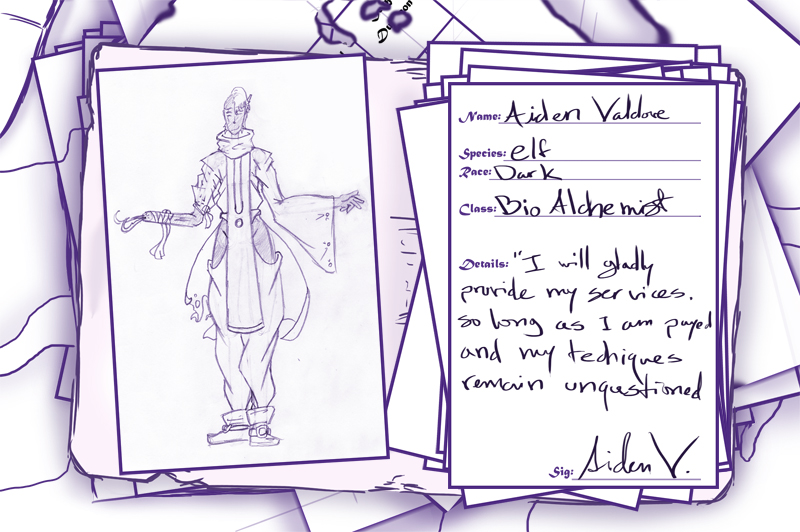 Name: Aiden Valdove
Species: elf
Race: Dark
Class: Bio Alchemist
Details: "I will gladly
provide my services.
so long as I am payed
and my techiques
remain unquestioned
Sig: Aiden V.